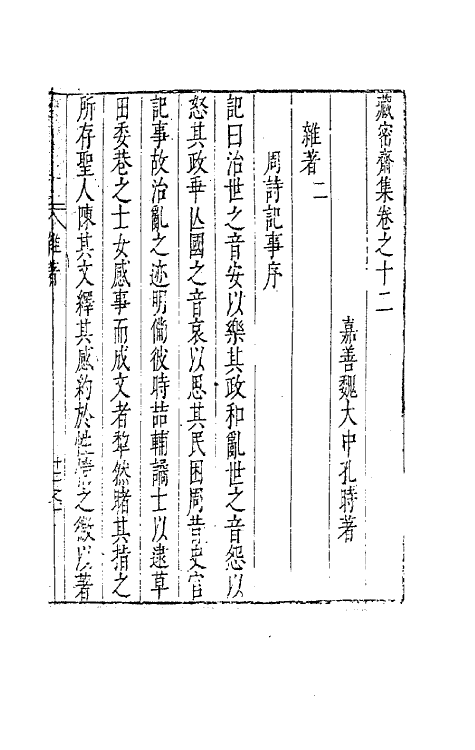 藏密齋集卷之十二
嘉善魏大中孔時著
雜著二
周詩記事序
記曰治世之音安以樂其政和亂世之音怨以
怒其政乖亾國之音哀以思其民困周昔史官
記事故治亂之迹明僃彼時喆輔譎士以逮草
田委巷之士女感事而成文者犂然睹其指之
所存聖人陳其文釋其感約於性情之微以著
雜著